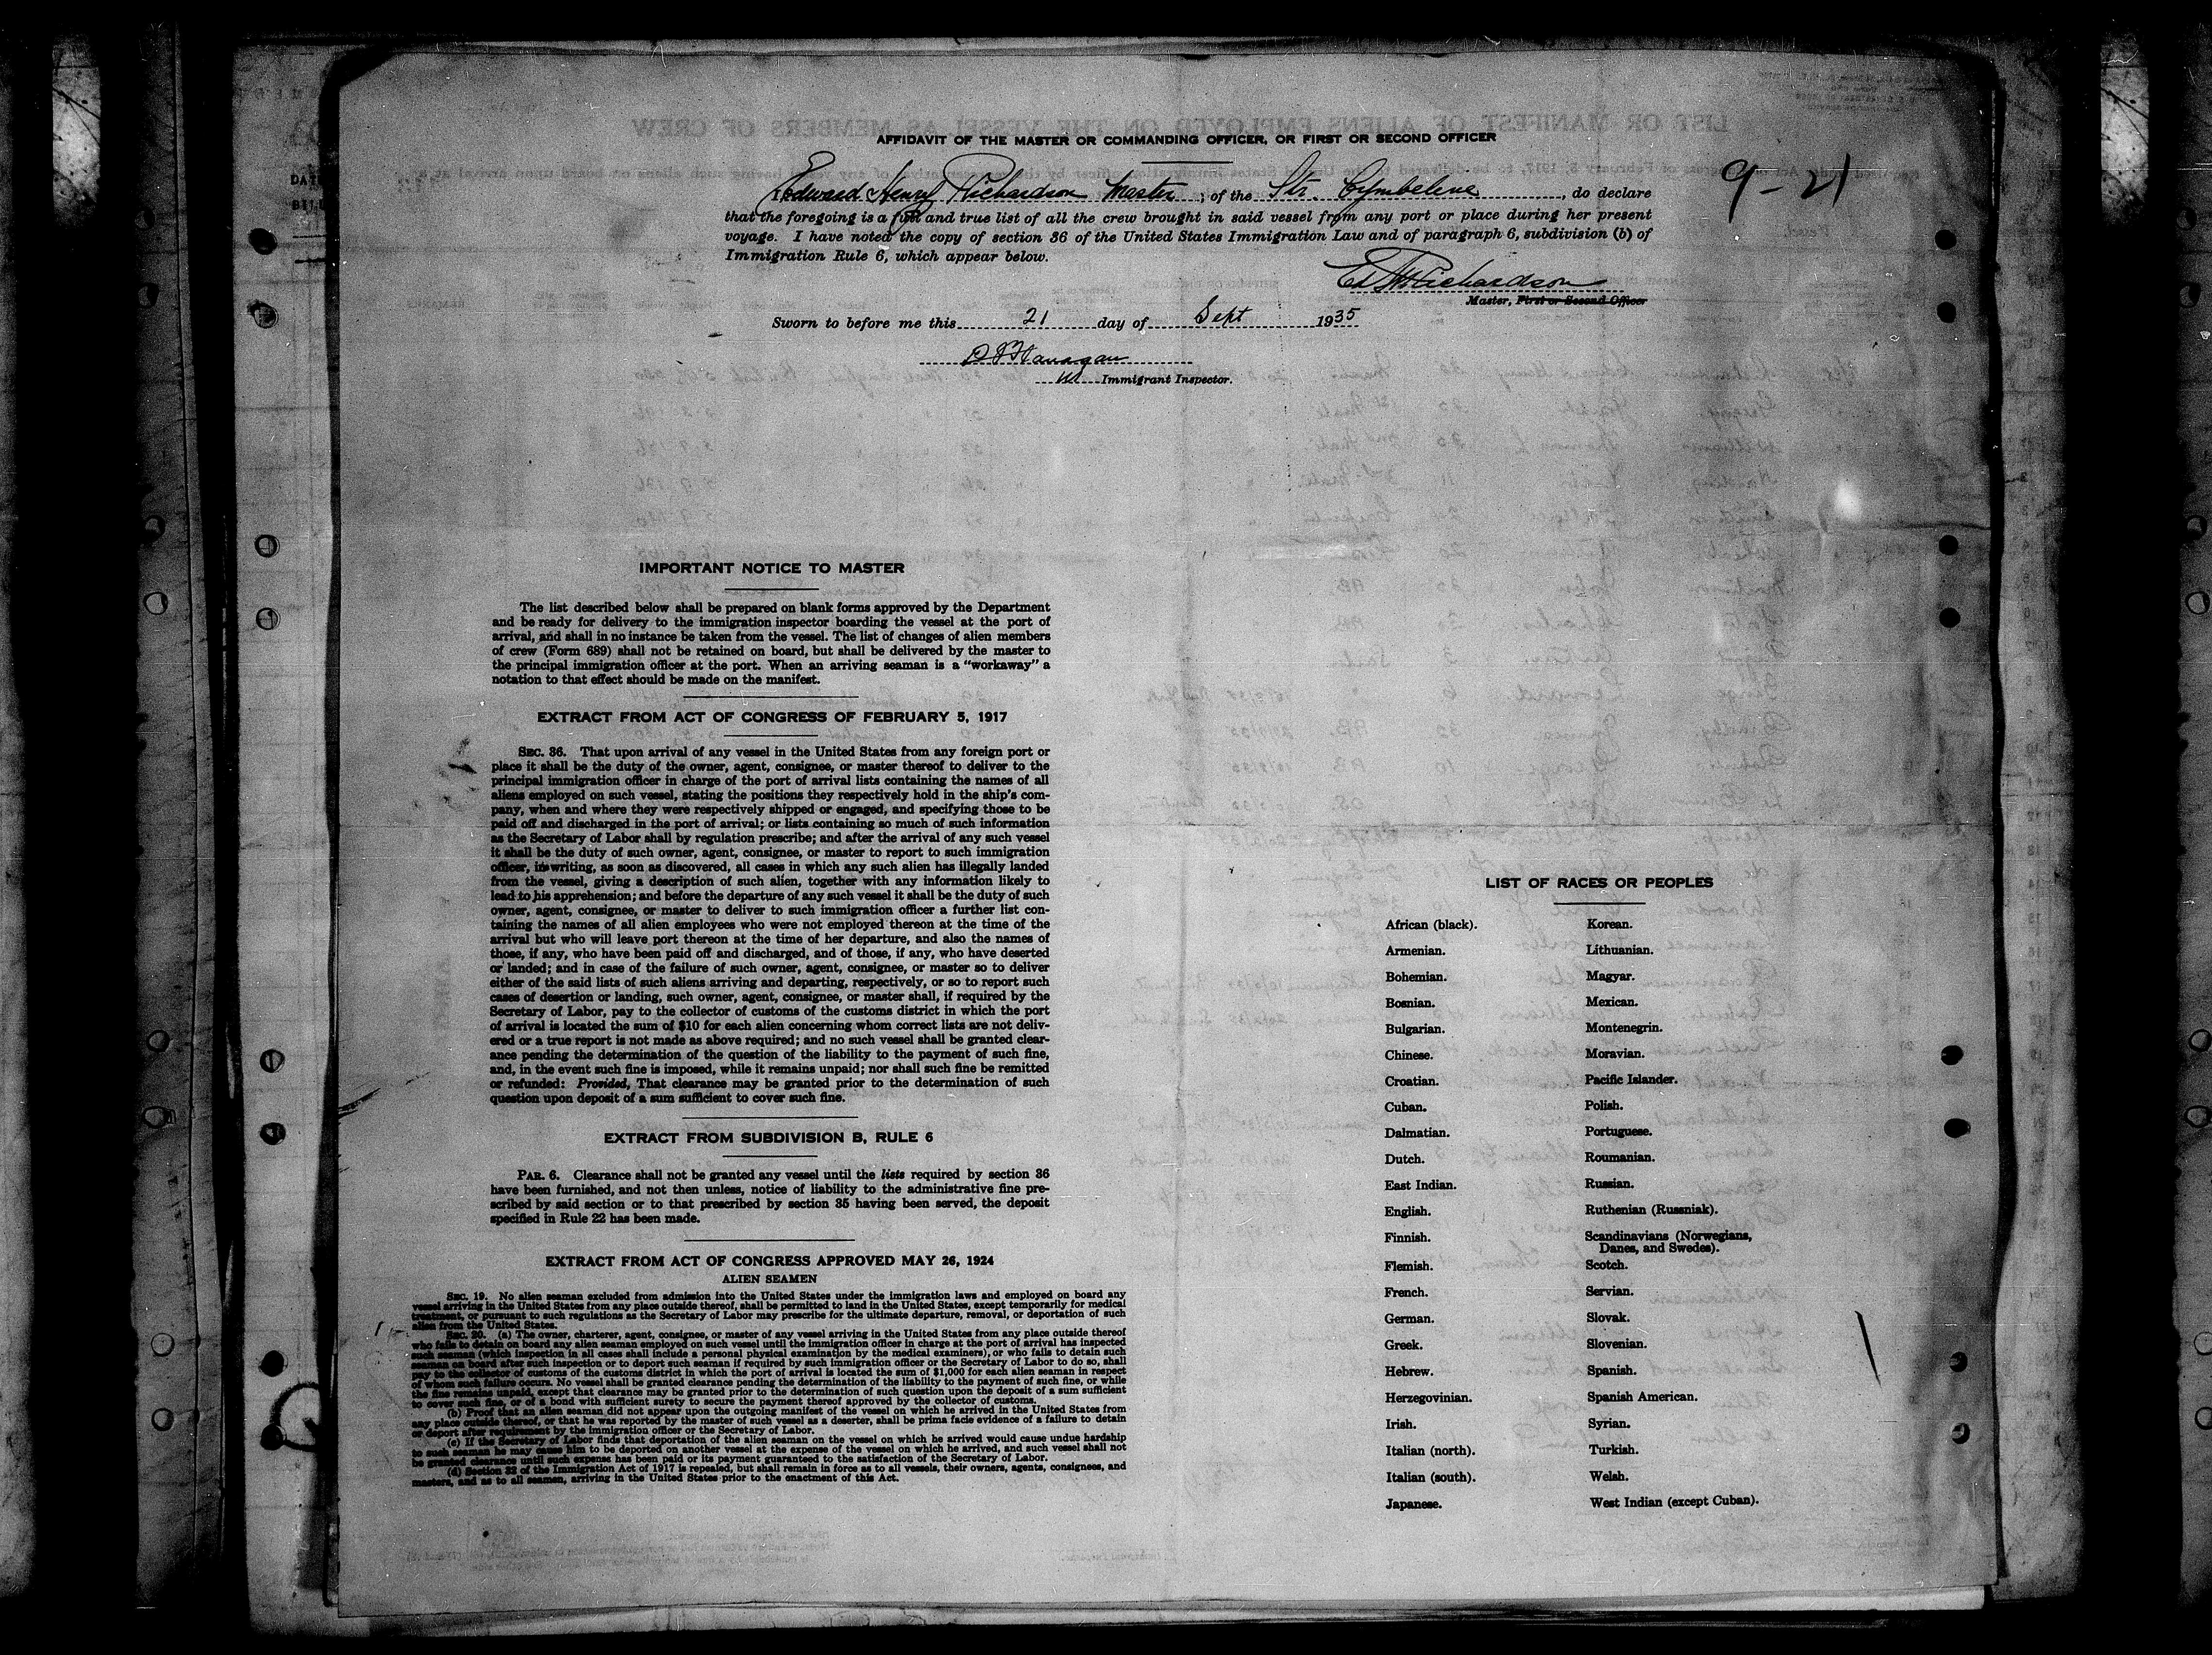 AFFIDAVIT OF THE MASTER OR COMMANDING OFFICER, OR FIRST OR SECOND OFFICER
9-21
I, Edward Henry Richardson Master, of the Str. Cymbeline, do declare
that the foregoing is a full and true list of all the crew brought in said vessel from any port or place during her present
voyage. I have noted the copy of section 36 of the United States Immigration Law and of paragraph 6, subdivision (b) of
Immigration Rule 6, which appear below.
Ed H Richardson
Master, First or Second Officer
Sworn to before me this 21 day of Sept 1935
Flanagan
Immigrant Inspector.
IMPORTANT NOTICE TO MASTER
The list described below shall be prepared on blank forms approved by the Department
and be ready for delivery to the immigration inspector boarding the vessel at the port of
arrival, and shall in no instance be taken from the vessel. The list of changes of alien members
of crew (Form 689) shall not be retained on board, but shall be delivered by the master to
the principal immigration officer at the port. When an arriving seaman is a "workaway" a
notation to that effect should be made on the manifest.
EXTRACT FROM ACT OF CONGRESS OF FEBRUARY 5, 1917
SEC. 36. That upon arrival of any vessel in the United States from any foreign port or
place it shall be the duty of the owner, agent, consignee, or master thereof to deliver to the
principal immigration officer in charge of the port of arrival lists containing the names of all
aliens employed on such vessel, stating the positions they respectively hold in the ship's com-
pany, when and where they were respectively shipped or engaged, and specifying those to be
paid off and discharged in the port of arrival; or lists containing so much of such information
as the Secretary of Labor shall by regulation prescribe; and after the arrival of any such vessel
it shall be the duty of such owner, agent, consignee, or master to report to such immigration
officer, in writing, as soon as discovered, all cases in which any such alien has illegally landed
from the vessel, giving a description of such alien, together with any information likely to
lead to his apprehension; and before the departure of any such vessel it shall be the duty of such
owner, agent, consignee, or master to deliver to such immigration officer a further list con-
taining the names of all alien employees who were not employed thereon at the time of the
arrival but who will leave port thereon at the time of her departure, and also the names of
those, if any, who have been paid off and discharged, and of those, if any, who have deserted
or landed; and in case of the failure of such owner, agent, consignee, or master so to deliver
either of the said lists of such aliens arriving and departing, respectively, or so to report such
cases of desertion or landing, such owner, agent, consignee, or master shall, if required by the
Secretary of Labor, pay to the collector of customs of the customs district in which the port
of arrival is located the sum of $10 for each alien concerning whom correct lists are not deliv-
ered or a true report is not made as above required; and no such vessel shall be granted clear-
ance pending the determination of the question of the liability to the payment of such fine,
and, in the event such fine is imposed, while it remains unpaid; nor shall such fine be remitted
or refunded: Provided, That clearance may be granted prior to the determination of such
question upon deposit of a sum sufficient to cover such fine.
EXTRACT FROM SUBDIVISION B, RULE 6
PAR. 6. Clearance shall not be granted any vessel until the lists required by section 36
have been furnished, and not then unless, notice of liability to the administrative fine pre-
scribed by said section or to that prescribed by section 35 having been served, the deposit
specified in Rule 22 has been made.
EXTRACT FROM ACT OF CONGRESS APPROVED MAY 26, 1924
ALIEN SEAMEN
SEC. 19. No alien seaman excluded from admission into the United States under the immigration laws and employed on board any
vessel arriving in the United States from any place outside thereof, shall be permitted to land in the United States, except temporarily for medical
treatment, or pursuant to such regulations as the Secretary of Labor may prescribe for the ultimate departure, removal, or deportation of such
alien from the United States.
SEC. 20. (a) The owner, charterer, agent, consignee, or master of any vessel arriving in the United States from any place outside thereof
who fails to detain on board any alien seaman employed on such vessel until the immigration officer in charge at the port of arrival has inspected
such seaman (which inspection in all cases shall include a personal physical examination by the medical examiners), or who fails to detain such
seaman on board after such inspection or to deport such seaman if required by such immigration officer or the Secretary of Labor to do so, shall
pay to the collector of customs of the customs district in which the port of arrival is located the sum of $1,000 for each alien seaman in respect
of whom such failure occurs. No vessel shall be granted clearance pending the determination of the liability to the payment of such fine, or while
the fine remains unpaid, except that clearance may be granted prior to the determination of such question upon the deposit of a sum sufficient
to cover such fine, or of a bond with sufficient surety to secure the payment thereof approved by the collector of customs.
(b) Proof that an alien seaman did not appear upon the outgoing manifest of the vessel on which he arrived in the United States from
any place outside thereof, or that he was reported by the master of such vessel as a deserter, shall be prima facie evidence of a failure to detain
or deport after requirement by the immigration officer or the Secretary of Labor.
(c) If the Secretary of Labor finds that deportation of the alien seaman on the vessel on which he arrived would cause undue hardship
to such seaman he may cause him to be deported on another vessel at the expense of the vessel on which he arrived, and such vessel shall not
be granted clearance until such expense has been paid or its payment guaranteed to the satisfaction of the Secretary of Labor.
(d) Section 32 of the Immigration Act of 1917 is repealed, but shall remain in force as to all vessels, their owners, agents, consignees, and
masters, and as to all seamen, arriving in the United States prior to the enactment of this Act.
LIST OF RACES OR PEOPLES
African (black).
Armenian.
Bohemian.
Bosnian.
Bulgarian.
Chinese.
Croatian.
Cuban.
Dalmatian.
Dutch.
East Indian.
English.
Finnish.
Flemish.
French.
German.
Greek.
Hebrew.
Herzegovinian.
Irish.
Italian (north).
Italian (south).
Japanese.
Korean.
Lithuanian.
Magyar.
Mexican.
Montenegrin.
Moravian.
Pacific Islander.
Polish.
Portuguese.
Roumanian.
Russian.
Ruthenian (Russniak).
Scandinavians (Norwegians,
Danes, and Swedes).
Scotch.
Servian.
Slovak.
Slovenian.
Spanish.
Spanish American.
Syrian.
Turkish.
Welsh.
West Indian (except Cuban).